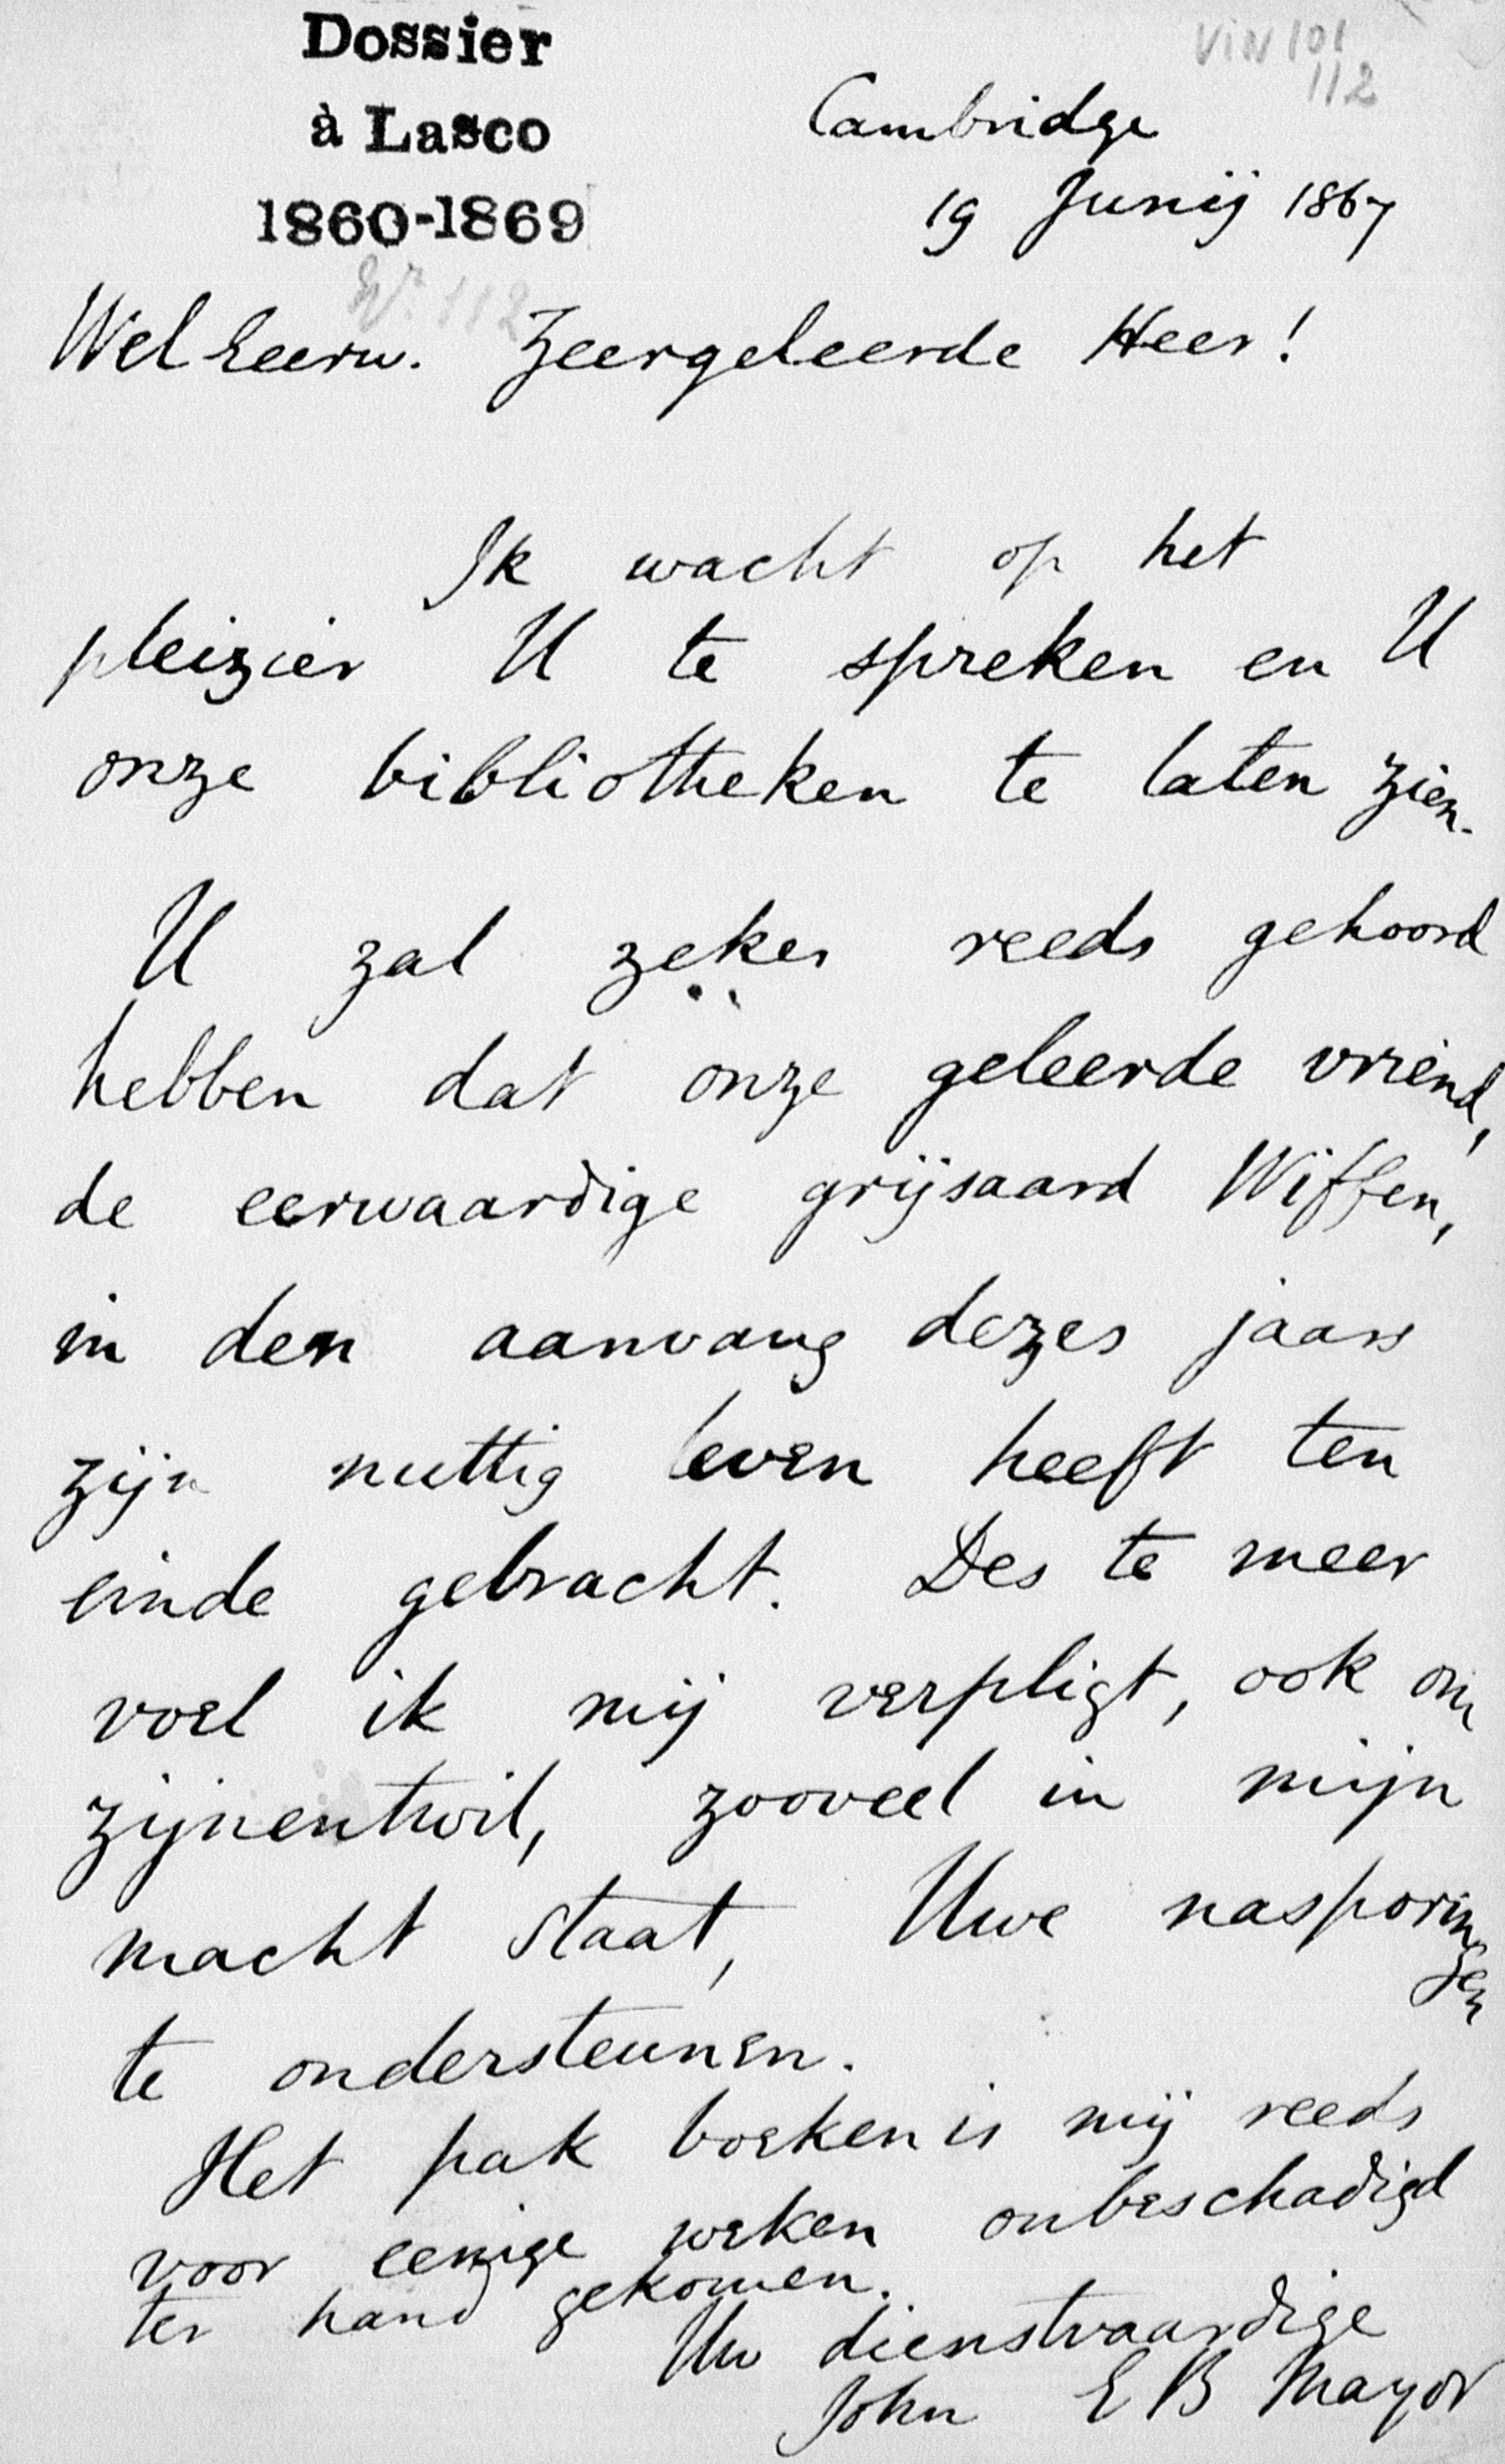 Dossier
à Lasco
1860-1869
VIN 101
112
Cambridge
19 Junij 1867
Nr. 112
Wel Eeerw. Zeergeleerde Heer!
Ik wacht op het
pleizier U te spreken en U
onze bibliotheken te laten zien.
U zal zeker reeds gehoord
hebben dat onze geleerde vriend,
de eerwaardige grijsaard Wiffen,
in den aanvang dezes jaars
zijn nuttig leven heeft ten
einde gebracht. Des te meer
voel ik mij verpligt, ook om
zijnentwil, zooveel in mijn
macht staat, Uwe nasporingen
te ondersteunen.
Het pak boeken is mij reeds
voor eenige weken onbeschadigd
ter hand gekomen.
Uw dienstvaardige
John E B Mayor